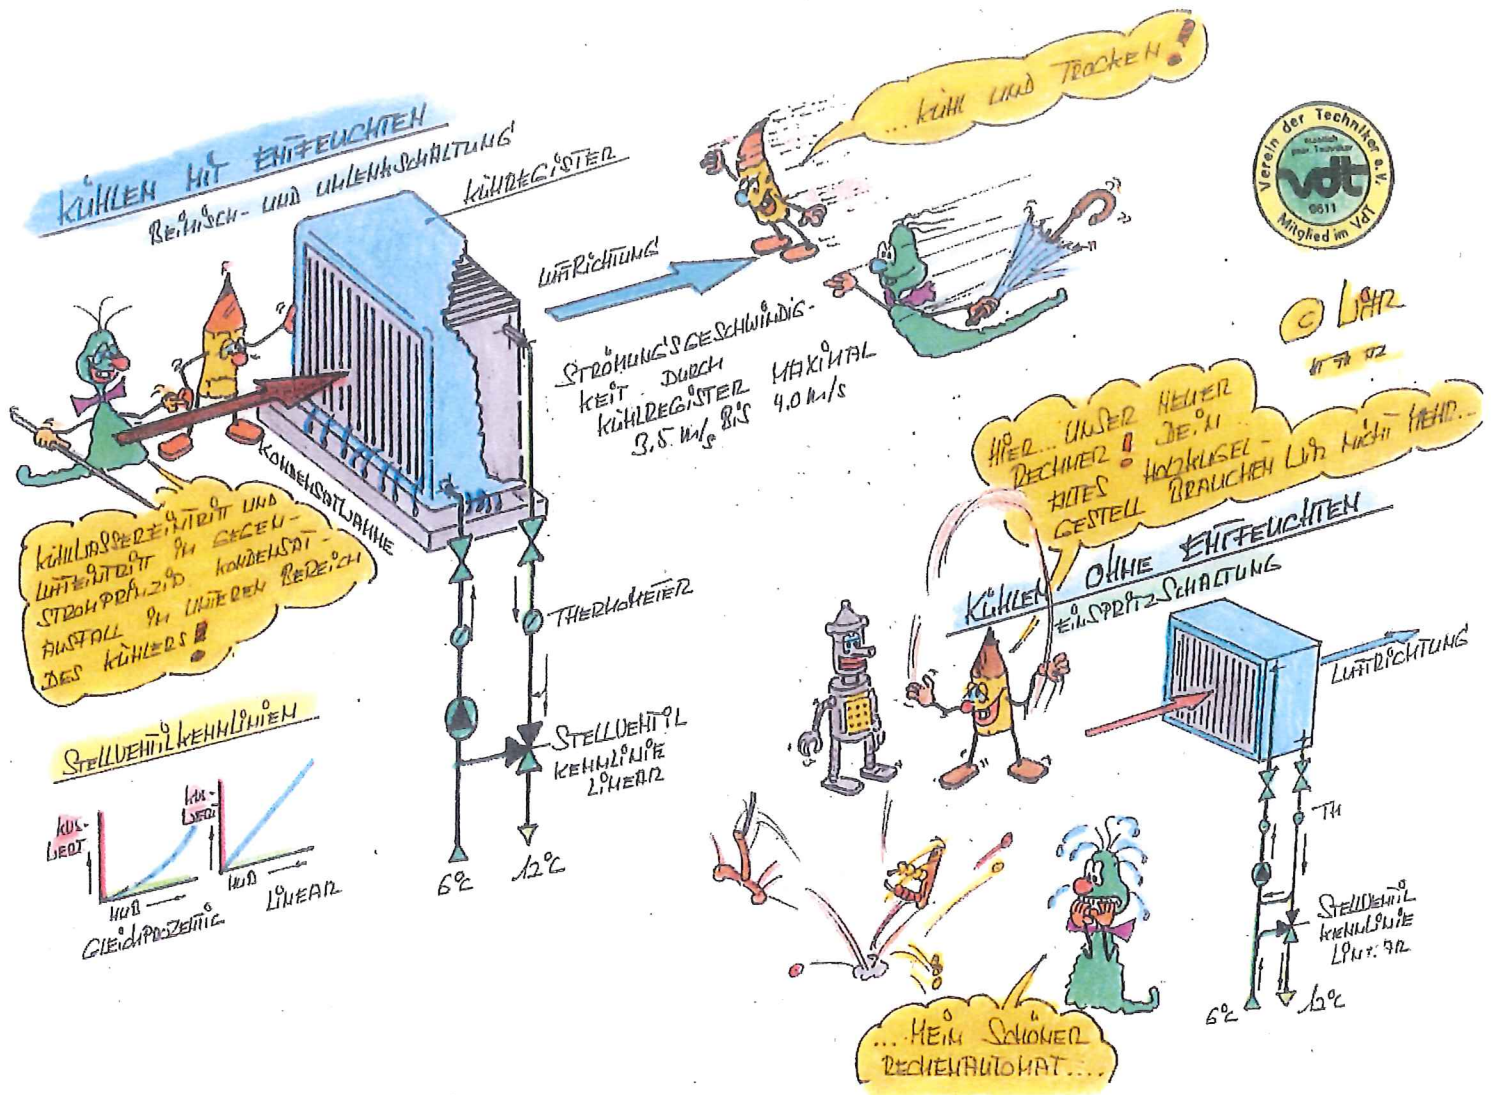 KÜHLEN MIT ENTFEUCHTEN
BEIMISCH- UND UMLENKSCHALTUNG
KÜHLREGISTER
LUFTRICHTUNG
... KÜHL UND TROCKEN!
Verein der Techniker e.V.
staatlich
gepr. Techniker
vdt
9611
Mitglied im VdT
© LÄHR
STRÖMUNGSGESCHWINDIG-
KEIT DURCH
KÜHLREGISTER MAXIMAL
3,5 m/s BIS 4.0 m/s
KONDENSATWANNE
KÜHLWASSEREINTRITT UND
LUFTEINTRITT IM GEGEN-
STROMPRINZIP KONDENSAT-
AUSFALL IM UNTEREN BEREICH
DES KÜHLERS!
THERMOMETER
STELLVENTIL
KENNLINIE
LINEAR
6°C
12°C
STELLVENTILKENNLINIEN
KVS-
WERT
HUB
GLEICHPROZENTIG
KVS-
WERT
HUB
LINEAR
HIER... UNSER NEUER
RECHNER! DEIN
ALTES HOLZKUGEL-
GESTELL BRAUCHEN WIR NICHT MEHR...
KÜHLEN OHNE ENTFEUCHTEN
EINSPRITZSCHALTUNG
LUFTRICHTUNG
TH
STELLVENTIL
KENNLINIE
LINEAR
6°C
12°C
... MEIN SCHÖNER
RECHENAUTOMAT....